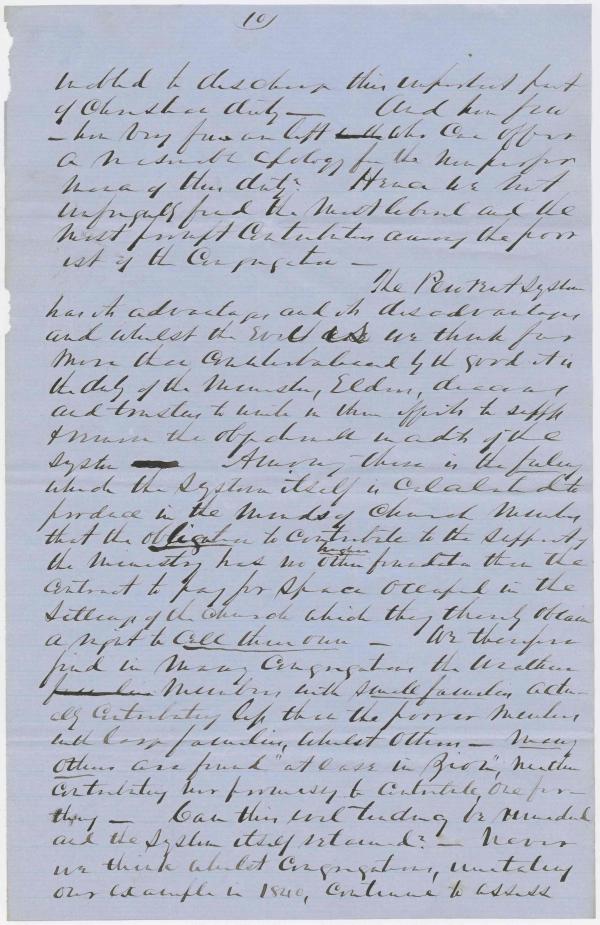 10
enabled to discharge this important part
of Christian duty — And how few
- how very few are left who can offer
a reasonable apology for the non perfor
mance of this duty. Hence we not
unfrequently find the most liberal and the
most prompt contributions among the poor
est of the Congregation —
The Pew rent System
has its advantages and its disadvantages
and whilst the evils are we think far
more than counterbalanced by the good it is
the duty of the Minister, Elders, deacons
and trustees to unite in their efforts to
remove the system
Among these is the feeling
which the System itself is calculated to
produce in the minds of Church Members
that the obligation to contribute to the support of
the Ministry has no higher foundation than the
contract to pay for space occupied in the
Sittings of the Church which they thereby obtain
a right to call their own — We therefore
find in many Congregations the wealthier
Members with small families actu-
ally contributing less than the poorer members
with large families, whilst others — many
others are found "at ease in Zion", neither
contributing nor promising to contribute, one far-
thing — Can this evil tendency be remedied
and the System itself retained? — Never
we think whilst Congregations, imitating
our example in 1840, continue to assess